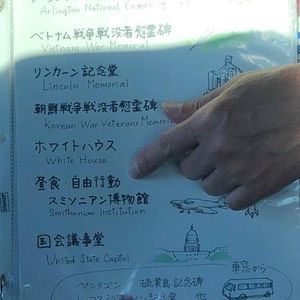 Arlington National
ベトナム戦争戦没者慰霊碑
Vietnam War Memorial
リンカーン記念堂
Lincoln Memorial
朝鮮戦争戦没者慰霊碑
Korean War Veterans Memorial
ホワイトハウス
White House
昼食・自由行動
スミソニアン博物館
Smithsonian Institution
国会議事堂
United State Capitol
車窓から
ペンタゴン 硫黄島記念碑